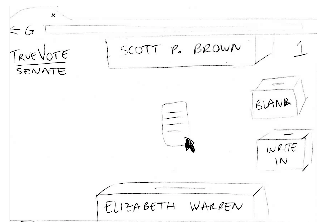 SCOTT P. BROWN
1
TRUEVOTE
SENATE
BLANK
WRITE
IN
ELIZABETH WARREN